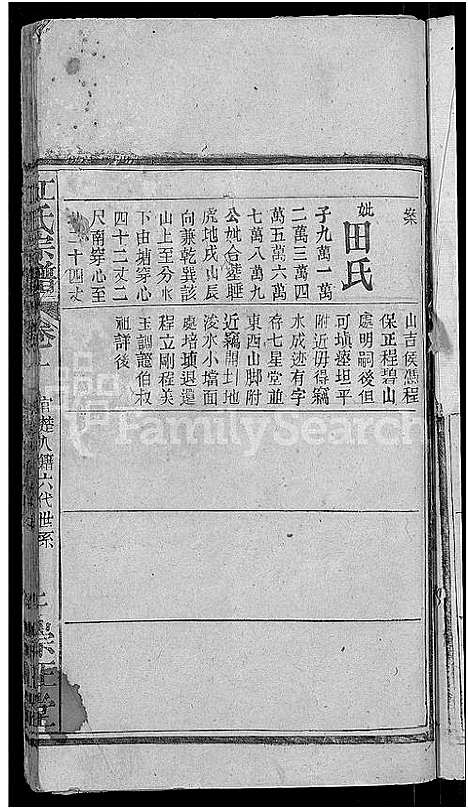 粲
妣田氏
子九萬一萬
二萬三萬四
萬五萬六萬
七萬八萬九
公妣合塟騹
虎地戌山辰
向兼乾巽該
山上至分水
下由塘穿心
四十二丈二
尺南穿心至
二十四丈
山吉侯憑程
保正程碧山
處明嗣後但
可塡塟坦平
附近毋得竊
水成迹有字
存七星堂並
東西山脚附
近竊開圭地
淩水小壋面
處培瑣退還
程立剛程美
玉訓證伯叔
祖詳後
氏宗譜 卷一
六代世系
FamilySearch